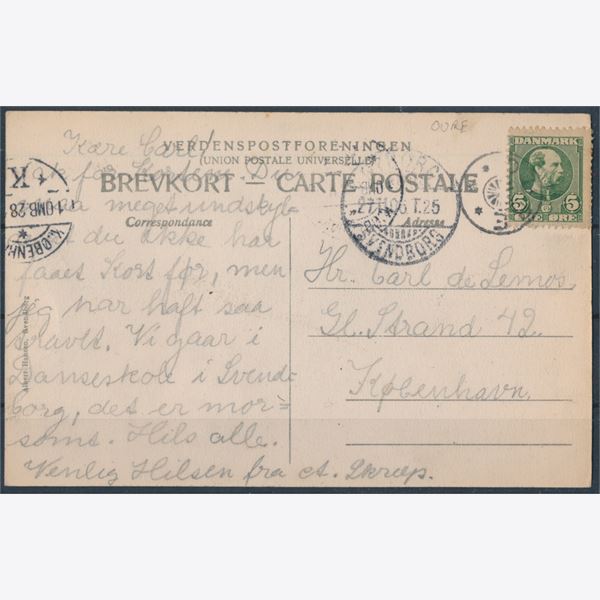 OURE
VERDENSPOSTFORENINGEN
(UNION POSTALE UNIVERSELLE)
BREVKORT – CARTE POSTALE
Correspondance
Adresse
DANMARK
5 5
ØRE
27.11.05 T.25
SVENDBORG
K
1-OMB. 28
KJØBENH
Albert Hansen, Svendborg
Kære Carl!
Tak for Kortene. Du
maa meget undskyl-
at du ikke har
faaet Kort før, men
jeg har haft saa
travlt. Vi gaar i
Danseskole i Svend-
borg, det er mor=
somt. Hils alle.
Venlig Hilsen fra
Hr. Carl de Lemos.
Gl. Strand 42.
København.